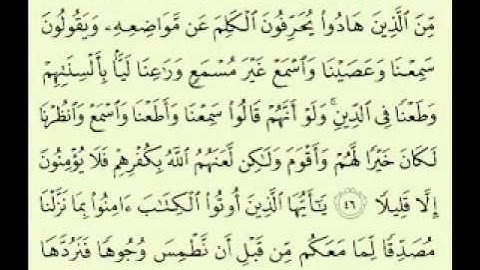 مِّنَ ٱلَّذِينَ هَادُوا۟ يُحَرِّفُونَ ٱلْكَلِمَ عَن مَّوَاضِعِهِۦ وَيَقُولُونَ
سَمِعْنَا وَعَصَيْنَا وَٱسْمَعْ غَيْرَ مُسْمَعٍ وَرَٰعِنَا لَيًّۢا بِأَلْسِنَتِهِمْ
وَطَعْنًا فِى ٱلدِّينِ ۚ وَلَوْ أَنَّهُمْ قَالُوا۟ سَمِعْنَا وَأَطَعْنَا وَٱسْمَعْ وَٱنظُرْنَا
لَكَانَ خَيْرًا لَّهُمْ وَأَقْوَمَ وَلَٰكِن لَّعَنَهُمُ ٱللَّهُ بِكُفْرِهِمْ فَلَا يُؤْمِنُونَ
إِلَّا قَلِيلًا ٤٦ يَٰٓأَيُّهَا ٱلَّذِينَ أُوتُوا۟ ٱلْكِتَٰبَ ءَامِنُوا۟ بِمَا نَزَّلْنَا
مُصَدِّقًا لِّمَا مَعَكُم مِّن قَبْلِ أَن نَّطْمِسَ وُجُوهًا فَنَرُدَّهَا